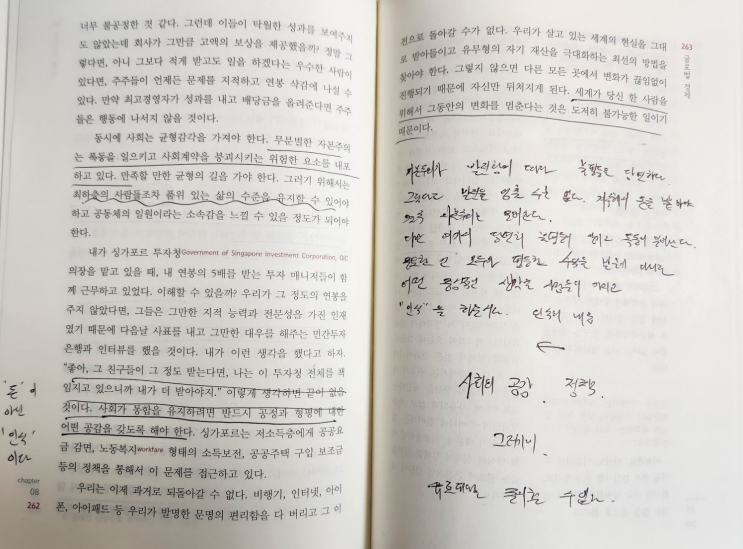 너무 불공정한 것 같다. 그런데 이들이 탁월한 성과를 보여주지
도 않았는데 회사가 그만큼 고액의 보상을 제공했을까? 정말 그
렇다면, 아니 그보다 적게 받고도 일을 하겠다는 우수한 사람이
있다면, 주주들이 언제든 문제를 지적하고 연봉 삭감에 나설 수
있다. 만약 최고경영자가 성과를 내고 배당금을 올려준다면 주주
들은 행동에 나서지 않을 것이다.
동시에 사회는 균형감각을 가져야 한다. 무분별한 자본주의
는 폭동을 일으키고 사회계약을 붕괴시키는 위험한 요소를 내포
하고 있다. 만족할 만한 균형의 길을 가야 한다. 그러기 위해서는
최하층의 사람들조차 품위 있는 삶의 수준을 유지할 수 있어야
하고 공동체의 일원이라는 소속감을 느낄 수 있을 정도가 되어야
한다.
내가 싱가포르 투자청Government of Singapore Investment Corporation, GIC
의장을 맡고 있을 때, 내 연봉의 5배를 받는 투자 매니저들이 함
께 근무하고 있었다. 이해할 수 있을까? 우리가 그 정도의 연봉을
주지 않았다면, 그들은 그만한 지적 능력과 전문성을 가진 인재
였기 때문에 다음날 사표를 내고 그만한 대우를 해주는 민간투자
은행과 인터뷰를 했을 것이다. 내가 이런 생각을 했다고 하자.
"좋아, 그 친구들이 그 정도 받는다면, 나는 이 투자청 전체를 책
임지고 있으니까 내가 더 받아야지." 이렇게 생각하면 끝이 없을
것이다. 사회가 통합을 유지하려면 반드시 공정과 형평에 대한
어떤 공감을 갖도록 해야 한다. 싱가포르는 저소득층에게 공공요
금 감면, 노동복지workfare 형태의 소득보전, 공공주택 구입 보조금
등의 정책을 통해서 이 문제를 접근하고 있다.
우리는 이제 과거로 되돌아갈 수 없다. 비행기, 인터넷, 아이
폰, 아이패드 등 우리가 발명한 문명의 편리함을 다 버리고 그 이
'돈'이
아닌
'인식'
이다
chapter
08
262
전으로 돌아갈 수가 없다. 우리가 살고 있는 세계의 현실을 그대
로 받아들이고 유무형의 자기 재산을 극대화하는 최선의 방법을
찾아야 한다. 그렇지 않으면 다른 모든 곳에서 변화가 끊임없이
진행되기 때문에 자신만 뒤처지게 된다. 세계가 당신 한 사람을
위해서 그동안의 변화를 멈춘다는 것은 도저히 불가능한 일이기
때문이다.
263
글로벌 경제
자본주의가 발전함에 따라 불평등은 당연하다.
그렇다고 발전을 멈출 수는 없다.
자본주의는
다만 여기서
어떤
"인식"을
사회의 공감, 정책.
그러하니
수 없다.